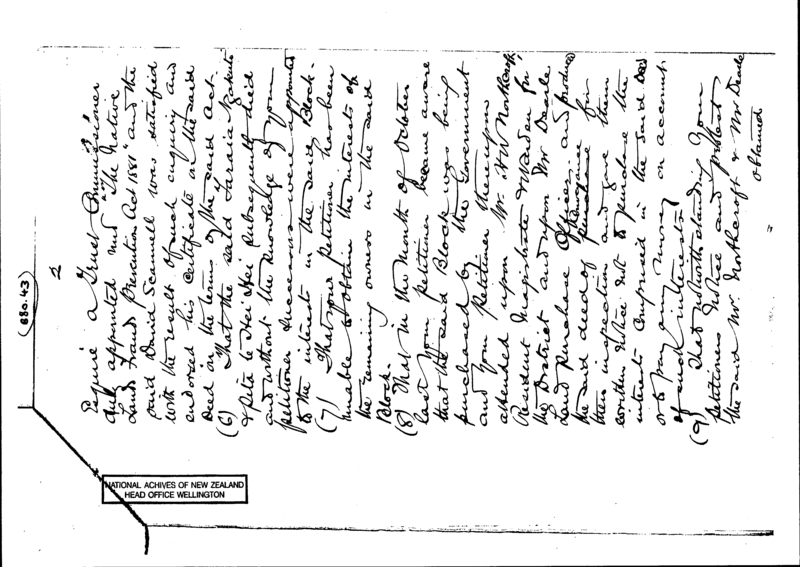 2
Esquire a Trust Commissioner
duly appointed under "The Native
Land Frauds Prevention Act 1881" and the
said David Scannell was satisfied
with the result of such enquiry and
endorsed his certificate on the said
Deed in the terms of the said Act.
(6) That the said Taraia
& Peta te Hei Hei subsequently died
and without the knowledge of your
petitioner successors were appointed
to the interest in the said Block.
(7) That your petitioner has been
unable to obtain the interests of
the remaining owners in the said
Block.
(8) That in the month of October
last your petitioner became aware
that the said Block was being
purchased by the Government
and your petitioner thereupon
attended upon Mr. H W Northcroft
Resident Magistrate & Warden for
the District and upon Mr Deane
Land Purchase Officer and produced
the said deed of for
their inspection and gave them
written notice not to purchase the
interests comprised in the said Deed
or to pay any money on account
of such interests
(9) That notwithstanding your
petitioners notice and protest
the said Mr. Northcroft & Mr Deane
obtained
(880.43)
NATIONAL ACHIVES OF NEW ZEALAND
HEAD OFFICE WELLINGTON